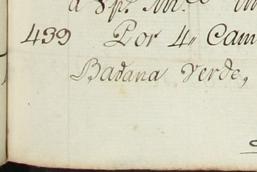 439 Por 4,, Cam
Badana Verde,